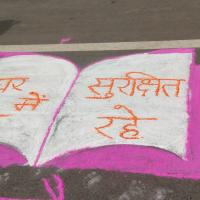 में
सुरक्षित
रहे